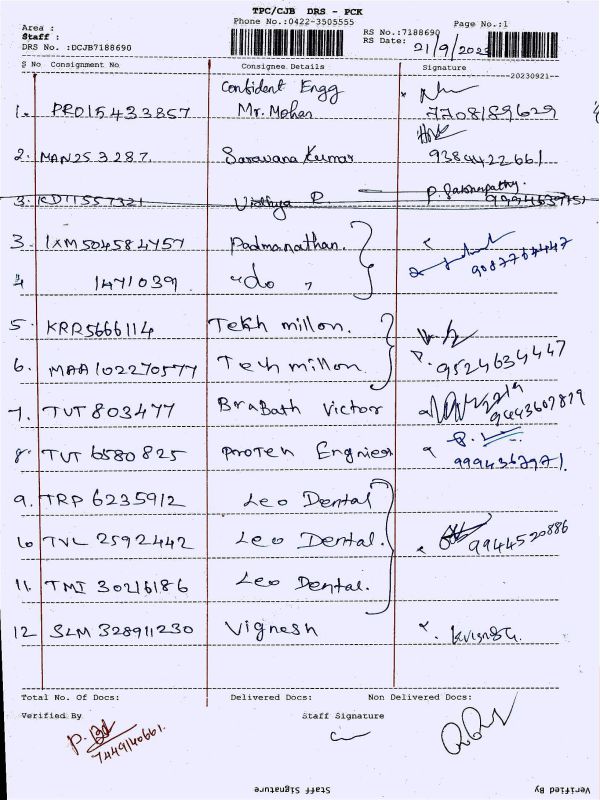 TPC/CJB DRS - PCK
Phone No.:0422-3505555 Page No.:1
Area :
Staff : RS No.:7188690
DRS No. :DCJB7188690 RS Date: 21/9/2023
S No Consignment No Consignee Details Signature
--20230921--
Confident Engg
1. PRO15433857 Mr. Mohan 7708189629
2. MAN253287. Saravana Kumar 9384422661
3. KD11557321 Vidhya P.
3. IXM504584757 Padmanathan. 9087767447
4 14710391 "do "
5. KRR5666114 Tekh millon.
6. MAA102270577 Tech millon. 9524634447
7. TVT 803477 BraBath Victor 9443607879
8. TVT 6580825 Proten Engnier 9994367971.
9. TRP 6235912 Leo Dental
10 TVL 2592442 Leo Dental. 9944520886
11 TMI 30216186 Leo Dental.
12 SLM 328911230 Vignesh
Total No. Of Docs: Delivered Docs: Non Delivered Docs:
Verified By Staff Signature
7449140661.
Staff Signature Verified By